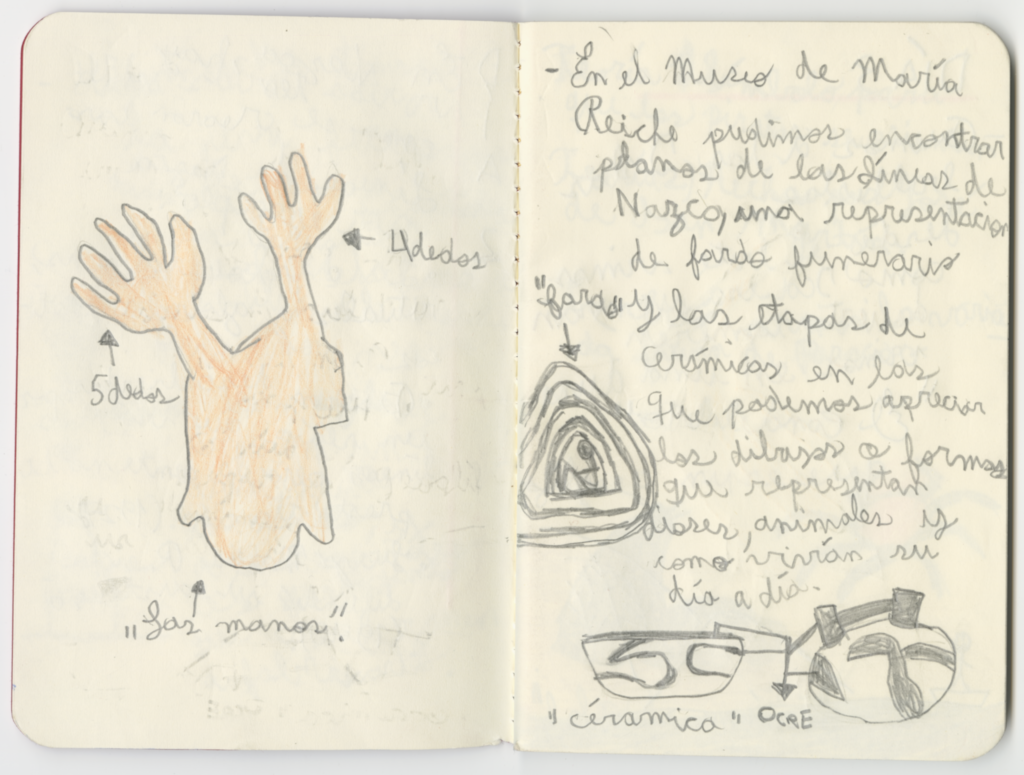 4 dedos
5 dedos
"Las manos".
- En el Museo de María
Reiche pudimos encontrar
planos de las Líneas de
Nazca, una representacion
de fardo funerario
"fardo" y las etapas de
cerámicas en las
que podemos apreciar
los dibujos o formas
que representan
dioses, animales y
como vivían su
día a día.
"céramica" OCRE